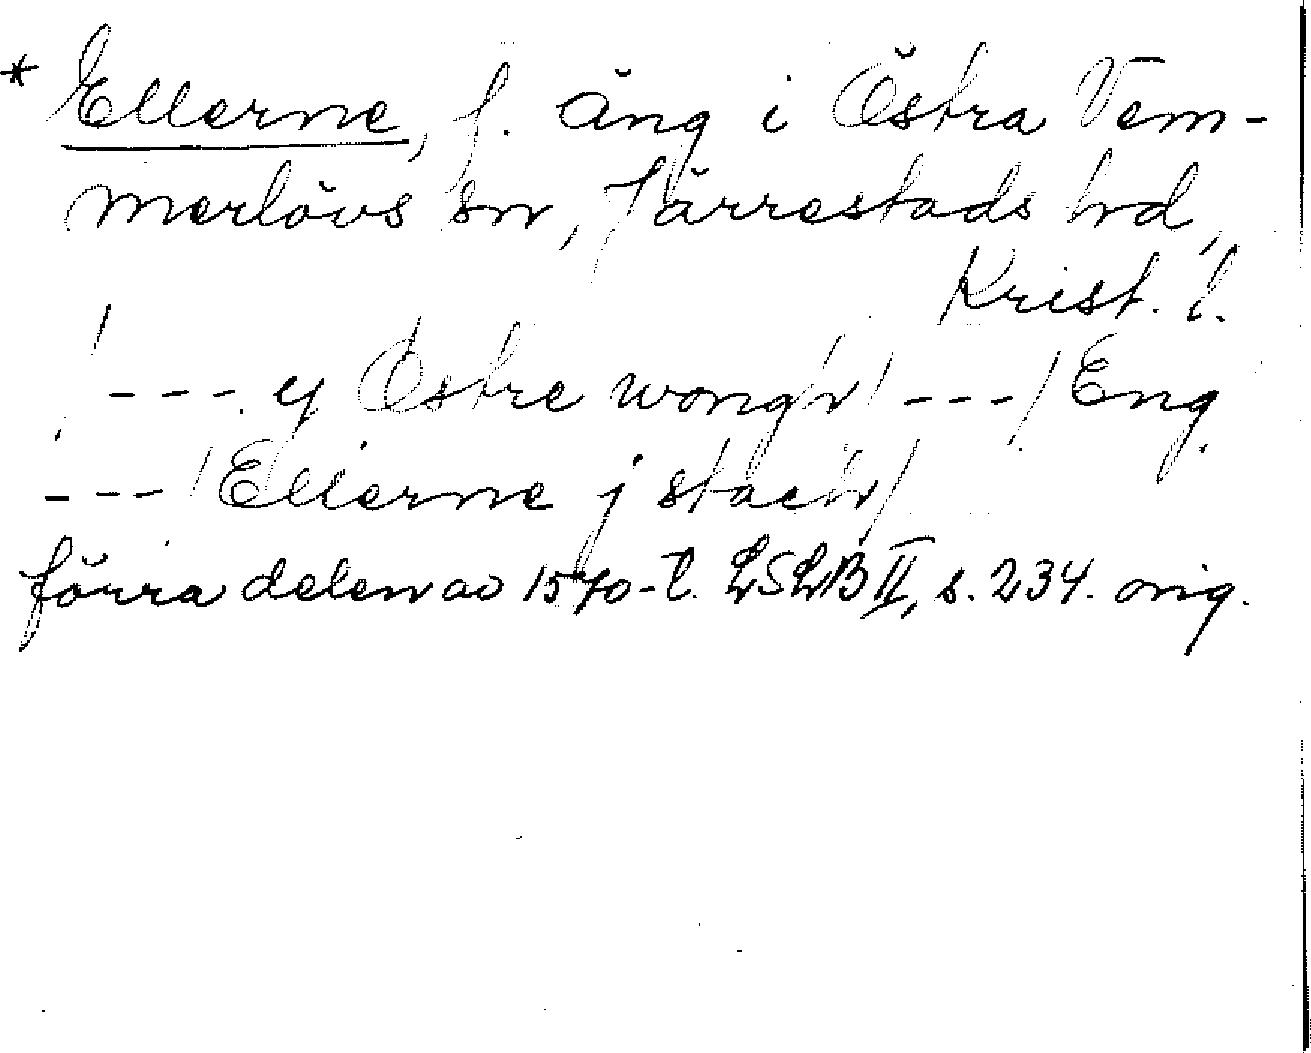 * Ellerne, f. äng i Östra Vem-
merlövs sn, Järrestads hd,
Krist. l.
/ --- y Östre wong'n / --- / Eng
--- / Ellerne j stæ'n /
förra delen av 1570-t. LSLB II, s. 234. orig.